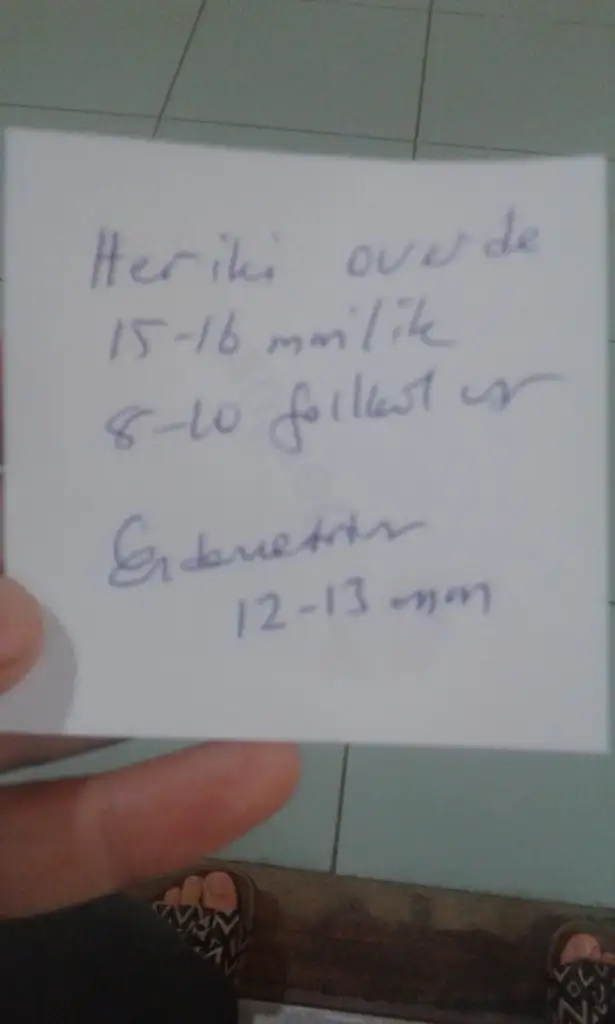 Her iki overde
15-16 mm'lik
8-10 folikül var
Endometrium
12-13 mm